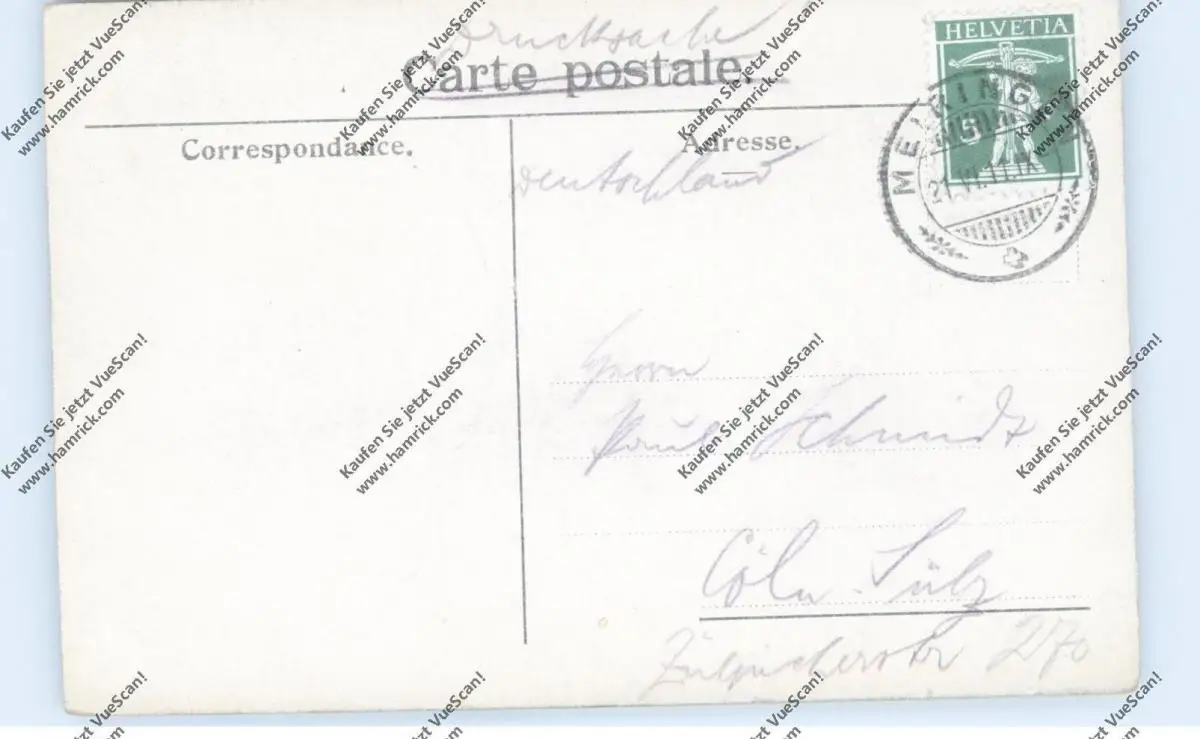 Drucksache
Carte postale.
HELVETIA
5
MEIRING
21.VI.11.IX
Correspondance.
Adresse.
Deutschland
Herrn
Paul Schmidt
Cöln-Sülz
Zülpicherstr 270
Kaufen Sie jetzt VueScan!
www.hamrick.com
Kaufen Sie jetzt VueScan!
www.hamrick.com
Kaufen Sie jetzt VueScan!
www.hamrick.com
Kaufen Sie jetzt VueScan!
www.hamrick.com
Kaufen Sie jetzt VueScan!
www.hamrick.com
Kaufen Sie jetzt VueScan!
www.hamrick.com
Kaufen Sie jetzt VueScan!
www.hamrick.com
Kaufen Sie jetzt VueScan!
www.hamrick.com
tzt VueScan!
tzt VueScan!
tzt VueScan!
tzt VueScan!